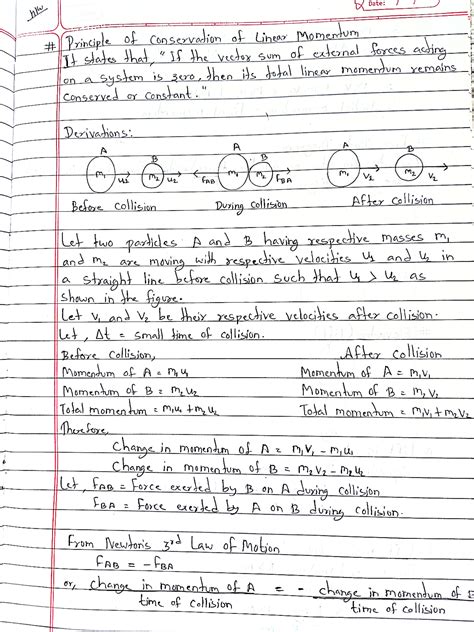 H/W
Date:
# Principle of Conservation of Linear Momentum
It states that, "If the vector sum of external forces acting
on a system is zero, then its total linear momentum remains
conserved or constant."
Derivations:
A B A B A B
m₁ u₁ m₂ u₂ F_AB m₁ m₂ F_BA m₁ v₁ m₂ v₂
Before collision During collision After collision
Let two particles A and B having respective masses m₁
and m₂ are moving with respective velocities u₁ and u₂ in
a straight line before collision such that u₁ > u₂ as
shown in the figure.
Let v₁ and v₂ be their respective velocities after collision.
Let, Δt = small time of collision.
Before collision, After collision
Momentum of A = m₁u₁ Momentum of A = m₁v₁
Momentum of B = m₂u₂ Momentum of B = m₂v₂
Total momentum = m₁u₁ + m₂u₂ Total momentum = m₁v₁ + m₂v₂
Therefore,
Change in momentum of A = m₁v₁ - m₁u₁
Change in momentum of B = m₂v₂ - m₂u₂
Let, F_AB = Force exerted by B on A during collision
F_BA = Force exerted by A on B during collision.
From Newton's 3rd Law of Motion
F_AB = -F_BA
or, change in momentum of A = - change in momentum of
time of collision time of collision